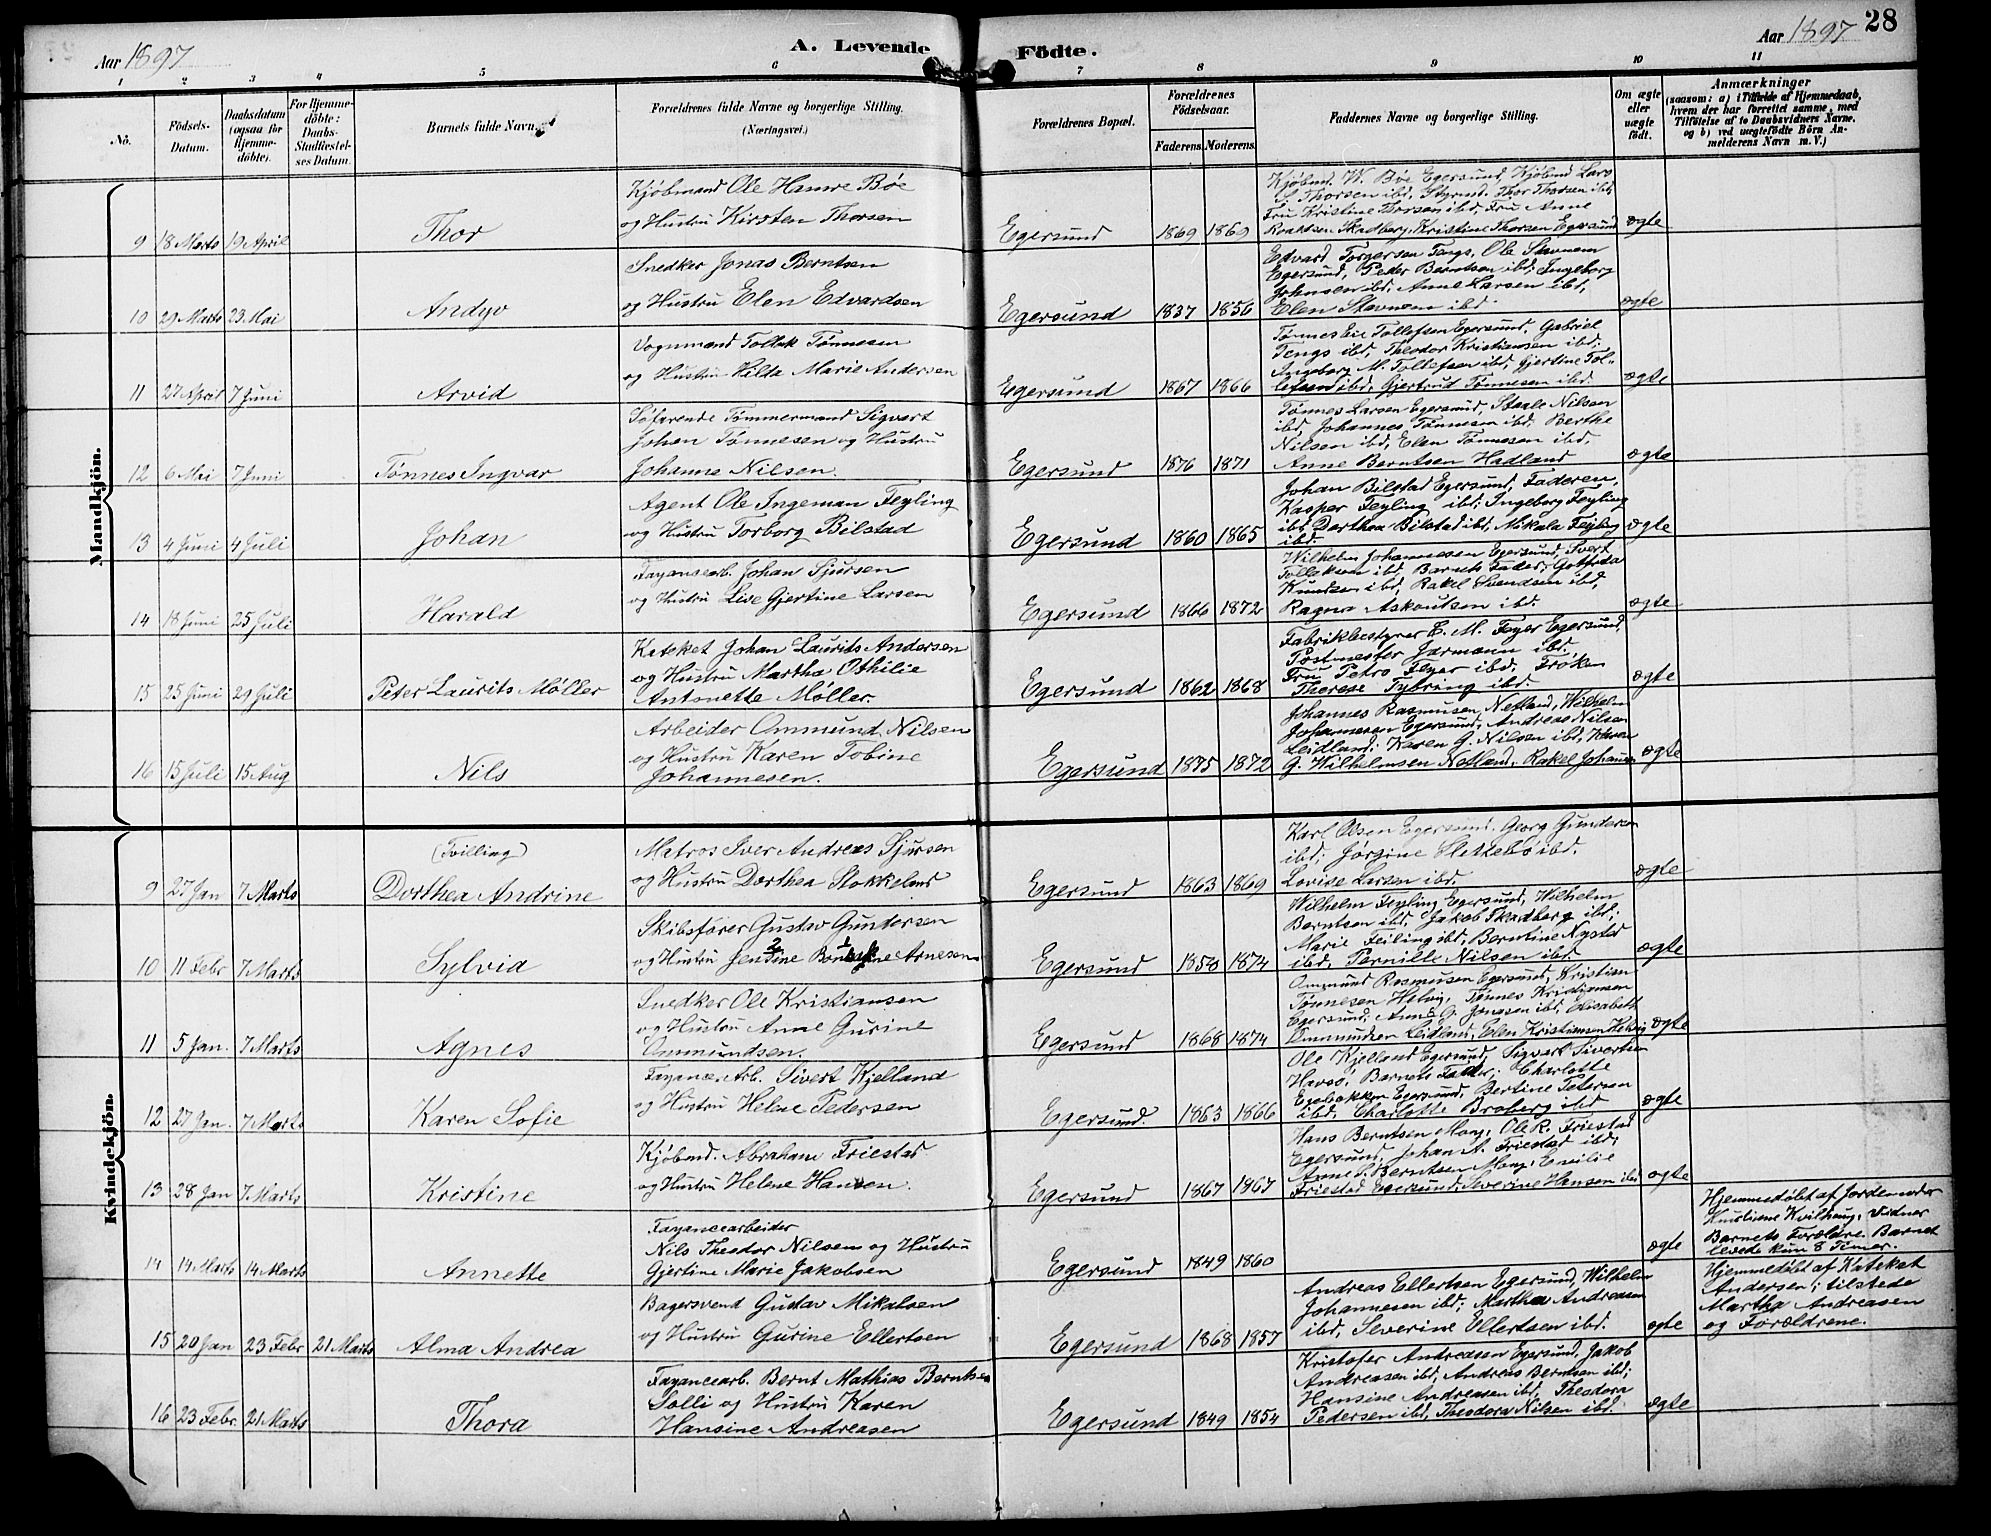 28
Aar 1897
A. Levende Födte.
Aar 1897
1 2 3 4 5 6 7 8 9 10 11
No.
Födsels-Datum.
Daabsdatum (ogsaa for Hjemmedöbte).
For Hjemmedöbte: Daabs-Stadfæstelses Datum.
Barnets fulde Navn.
Forældrenes fulde Navne og borgerlige Stilling. (Næringsvei.)
Forældrenes Bopæl.
Forældrenes Födselsaar.
Faderens. Moderens.
Faddernes Navne og borgerlige Stilling.
Om ægte eller uægte födt.
Anmærkninger
(saasom: a) i Tilfælde af Hjemmedaab, hvem der har forrettet samme, med Tilföielse af to Daabsvidners Navne, og b) ved uægtefödte Börn Anmelderens Navn m. V.)
Mandkjön.
9 18 Marts 19 April Thor
Kjøbmand Ole Hanne Bøe
og Hustru Kirsten Thorsen
Egersund 1869 1869
Kjøbmd. W. Bøe Egersund, Kjøbmd Lars
S. Thorsen ibd, Styrmd. Thor Thorsen ibd,
Fru Kristine Thorsen ibd, Fru Anne
Skadberg, Kristine Thorsen Egersund
ægte
10 29 Marts 23 Mai Andyv
Snedker Jonas Berntsen
og Hustru Elen Edvardsen
Egersund 1837 1856
Edvard Torgersen Tengs, Ole Stavnem
Egersund, Peder Berntsen ibd; Ingeborg
Johnsen ibd, Anne Larsen ibd,
Elen Stavnem ibd
ægte
11 27 April 7 Juni Arvid
Vognmand Tollak Tønnesen
og Hustru Hilda Marie Andersen
Egersund 1867 1866
Tønnes Tollefsen Egersund, Gabriel
Tengs ibd, Theodor Kristiansen ibd,
Ingeborg M. Tollefsen ibd, Gjertine Tol-
lefsen ibd, Gjertrud Tønnesen ibd.
ægte
12 6 Mai 7 Juni Tønnes Ingvar
Søfarende Tømmermand Sigvart
Johan Tønnesen og Hustru
Johanne Nilsen.
Egersund 1876 1871
Tønnes Larsen Egersund, Staale Nilsen
ibd, Johannes Tønnesen ibd; Berthe
Nilsen ibd, Elen Tønnesen ibd,
Anne Berntsen Hadland
ægte
13 4 Juni 4 Juli Johan
Agent Ole Ingeman Feyling
og Hustru Torborg Bilstad
Egersund 1860 1865
Johan Bilstad Egersund, Faderen,
Kasper Feyling ibd; Ingeborg Feyling
ibd, Dorthea Bilstad ibd, Mikala Feyling
ibd.
ægte
14 18 Juni 25 Juli Harald
Fayancearb. Johan Sjursen
og Hustru Live Gjertine Larsen
Egersund 1866 1872
Wilhelm Johannesen Egersund, Sivert
Tollaksen ibd, Barnets Fader; Gotfrida
Knudsen ibd, Rakel Svendsen ibd,
Ragna Askoutsen ibd.
ægte
15 25 Juni 29 Juli Peter Laurits Møller
Kateket Johan Laurits Andersen
og Hustru Martha Othilie
Antonette Møller.
Egersund 1862 1868
Fabrikbestyrer C. M. Feyer Egersund,
Postmester Jarmann ibd.
Fru Petra Feyer ibd, Frøken
Therese Tybring ibd.
ægte
16 15 Juli 15 Aug Nils
Arbeider Ommund Nilsen
og Hustru Karen Tobine
Johannesen.
Egersund 1875 1872
Johannes Rasmusen Netland, Wilhelm
Johannesen Egersund, Andreas Nilsen
Leidland; Karen G. Nilsen ibd, Karen
G. Wilhelmsen Netland, Rakel Johansen
ægte
Kvindekjön.
9 27 Jan 7 Marts (Tvilling) Dorthea Andrine
Matros Iver Andreas Sjursen
og Hustru Dorthea Stokkeland
Egersund 1863 1869
Karl Olsen Egersund, Georg Gundersen
ibd; Jørgine Slettebø ibd.
Lovise Larsen ibd.
ægte
10 11 Febr 7 Marts Sylvia
Skibsfører Gustav Gundersen
og Hustru Arnesen
Egersund 1858 1874
Wilhelm Feyling Egersund, Wilhelm
Berntsen ibd, Jakob Skadberg ibd;
Marie Feiling ibd, Berntine Nysted
ibd, Pernille Nilsen ibd
ægte
11 5 Jan. 7 Marts Agnes
Snedker Ole Kristiansen
og Hustru Anne Gurine
Ommundsen.
Egersund 1868 1874
Ommund Rasmusen Egersund, Kristian
Tønnesen Helvig, Tønnes Kristiansen
Egersund; Anna G. Jonasen ibd, Elisabeth
Ommundsen Leidland, Elen Kristiansen Helvig
ægte
12 27 Jan. 7 Marts Karen Sofie
Fayance-Arb. Sivert Kjelland
og Hustru Helene Pedersen
Egersund. 1863 1866
Ole Kjelland Egersund, Sigvart Sivertsen
Havsø, Barnets Fader; Charlotte
Egebakken Egersund, Bertine Petersen
ibd, Charlotte Broberg ibd
ægte
13 28 Jan 7 Marts Kristine
Kjøbmd. Abraham Friestad
og Hustru Helene Hansen.
Egersund 1867 1867
Hans Berntsen Mong, Ole R. Friestad
Egersund, Johan A. Friestad ibd,
Anne S. Berntsen Mong, Emilie
Friestad Egersund, Severine Hansen ibd
ægte
14 14 Marts 14 Marts Annette
Fayancearbeider
Nils Theodor Nilsen og Hustru
Gjertine Marie Jakobsen
Egersund 1849 1860
ægte
Hjemmedøbt af Jordemoder
Kvilhaug. Vidner
Barnets Forældre. Barnet
levede kun 8 Timer.
15 20 Jan 23 Febr 21 Marts Alma Andrea
Bagersvend Gustav Mikalsen
og Hustru Gurine Ellertsen
Egersund 1868 1857
Andreas Ellertsen Egersund, Wilhelm
Johannesen ibd; Martha Andreasen
ibd, Severine Ellertsen ibd.
ægte
Hjemmedøbt af Kateket
Andersen; tilstede
Martha Andreasen
og Forældrene.
16 23 Febr. 21 Marts Thora
Fayancearb. Bernt Mathias Berntsen
Solli og Hustru Karen
Hansine Andreasen
Egersund 1849 1854
Kristofer Andreasen Egersund, Jakob
Andreasen ibd, Andreas Berntsen ibd;
Hansine Andreasen ibd, Theodora
Pedersen ibd, Theodora Nilsen ibd.
ægte